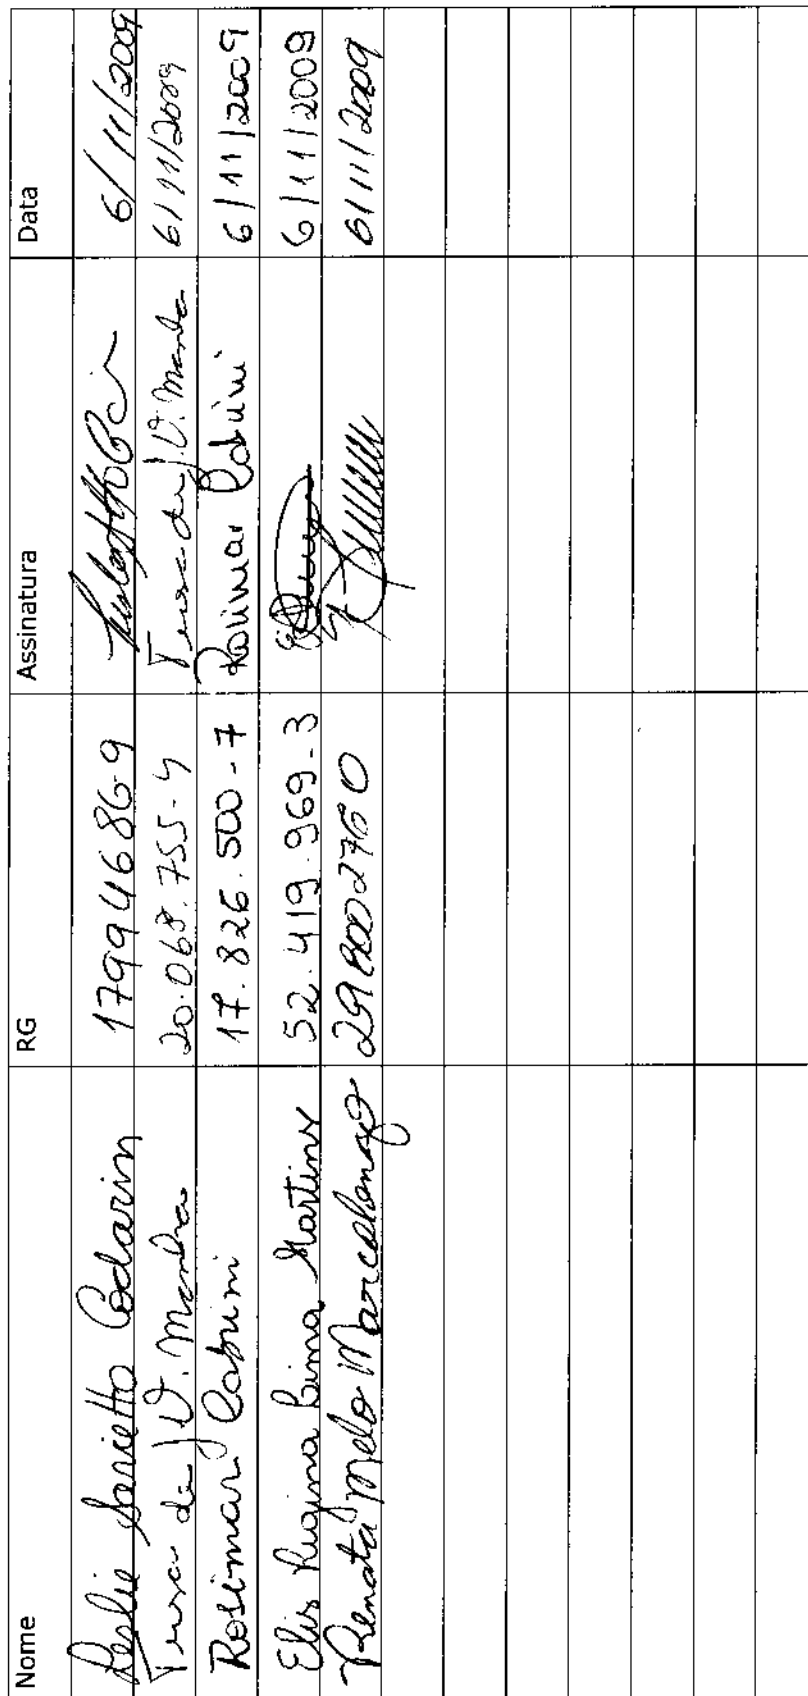 Nome RG Assinatura Data
Leslie Sarietto Codarin 179946869 6/11/2009
Teresa de J. V. Mendes 20.068.755-4 Teresa de J. V. Mendes 6/11/2009
Rosimar Cabrini 17.826.500-7 Rosimar Cabrini 6/11/2009
Elis Regina Lima Martins 52.419.969-3 6/11/2009
Renata Melo Marcelongo 298002760 6/11/2009